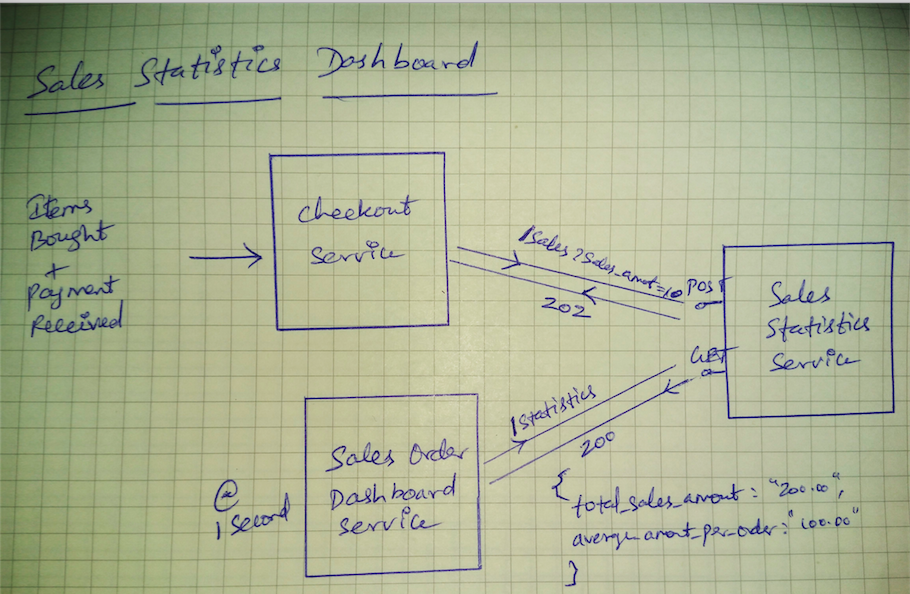 Sales Statistics Dashboard
Items
Bought
+
Payment
Received
Checkout
Service
/Sales?Sales_amout=10
202
POST
GET
Sales
Statistics
Service
/Statistics
200
@
1 second
Sales Order
Dashboard
Service
{
total_sales_amout: "200.00",
averge_amout_per_order: "100.00"
}